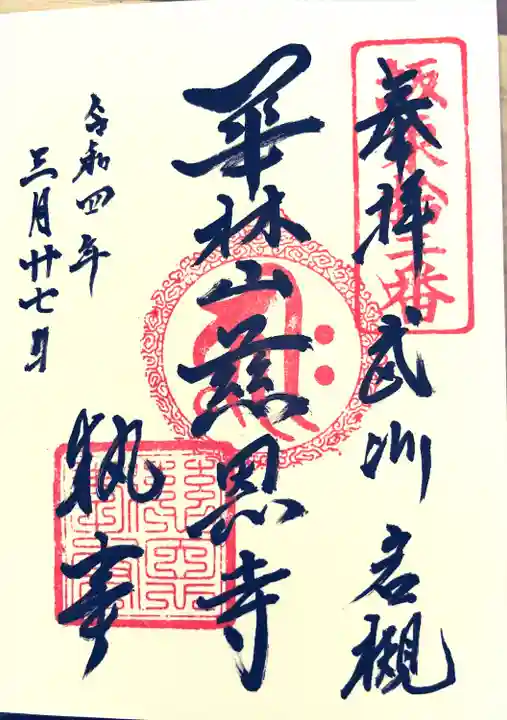 坂東拾二番
奉拝 武州 岩槻
華林山慈恩寺
執事
令和四年
三月廿七日